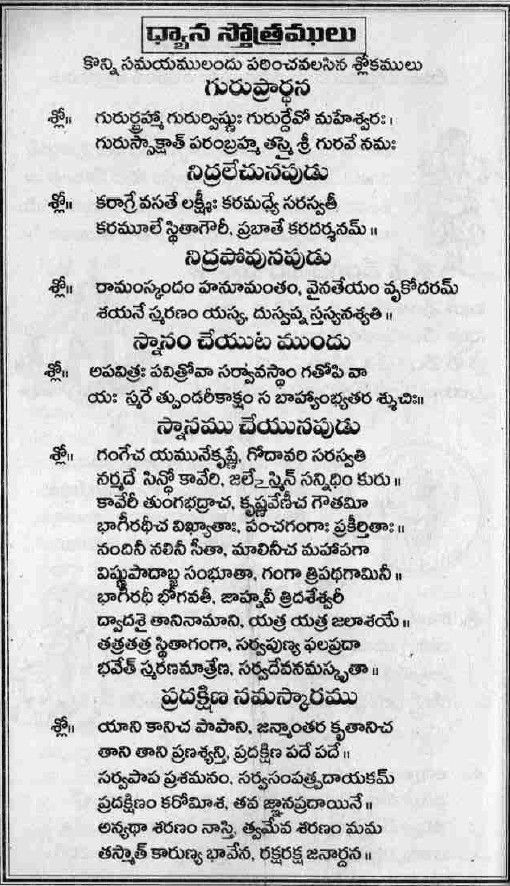 ధ్యాన స్తోత్రములు
కొన్ని సమయములందు పఠించవలసిన శ్లోకములు
గురుప్రార్థన
శ్లో॥ గురుర్బ్రహ్మా గురుర్విష్ణుః గురుర్దేవో మహేశ్వరః।
గురుస్సాక్షాత్ పరంబ్రహ్మ తస్మై శ్రీ గురవే నమః
నిద్రలేచునపుడు
శ్లో॥ కరాగ్రే వసతే లక్ష్మీః కరమధ్యే సరస్వతీ
కరమూలే స్థితాగౌరీ, ప్రభాతే కరదర్శనమ్॥
నిద్రపోవునపుడు
శ్లో॥ రామంస్కందం హనూమంతం, వైనతేయం వృకోదరమ్
శయనే స్మరణం యస్య, దుస్వప్న స్తస్యనశ్యతి॥
స్నానం చేయుట ముందు
శ్లో॥ అపవిత్రః పవిత్రోవా సర్వావస్థాం గతోపి వా
యః స్మరే త్పుండరీకాక్షం స బాహ్యాంభ్యతర శ్శుచిః॥
స్నానము చేయునపుడు
శ్లో॥ గంగేచ యమునేకృష్ణే, గోదావరి సరస్వతి
నర్మదే సిన్ధో కావేరి, జలేఽ స్మిన్ సన్నిధిం కురు॥
కావేరీ తుంగభద్రాచ, కృష్ణవేణీచ గౌతమీ
భాగీరథీచ విఖ్యాతాః, పంచగంగాః ప్రకీర్తితాః॥
నందినీ నలినీ సీతా, మాలినీచ మహాపగా
విష్ణుపాదాబ్జ సంభూతా, గంగా త్రిపథగామినీ॥
భాగీరథీ భోగవతీ, జాహ్నవీ త్రిదశేశ్వరీ
ద్వాదశై తానినామాని, యత్ర యత్ర జలాశయే॥
తత్రతత్ర స్థితాగంగా, సర్వపుణ్య ఫలప్రదా
భవేత్ స్మరణమాత్రేణ, సర్వదేవనమస్కృతా॥
ప్రదక్షిణ నమస్కారము
శ్లో॥ యాని కానిచ పాపాని, జన్మాంతర కృతానిచ
తాని తాని ప్రణశ్యన్తి, ప్రదక్షిణ పదే పదే॥
సర్వపాప ప్రశమనం, సర్వసంపత్ప్రదాయకమ్
ప్రదక్షిణం కరోమీశ, తవ జ్ఞానప్రదాయినే॥
అన్యథా శరణం నాస్తి, త్వమేవ శరణం మమ
తస్మాత్ కారుణ్య భావేన, రక్షరక్ష జనార్దన॥